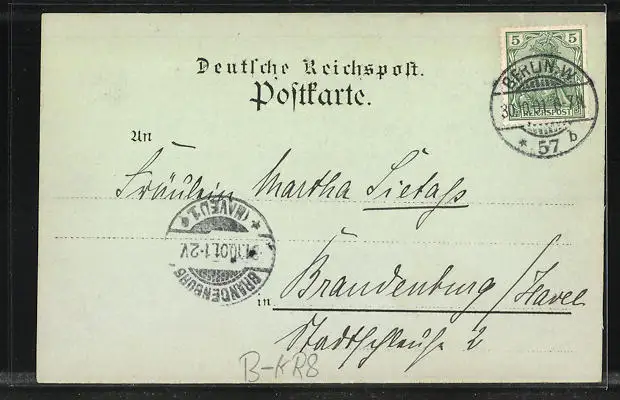 5 5
REICHSPOST
BERLIN. W.
30.10.01. 6-7N
* 57 b
Deutsche Reichspost.
Postkarte.
An
Fräulein Martha Sietaß
in Brandenburg/Havel
Stadtschleuse 2
* (HAVEL) 1. *
10.01. 1-2V.
BRANDENBURG
B-KR8